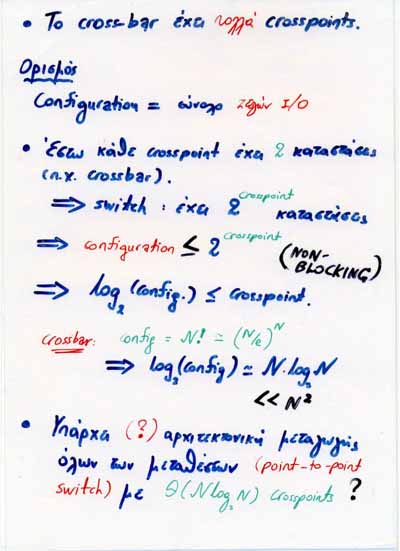 • Το cross-bar έχει πολλά crosspoints.
Ορισμός
Configuration = σύνολο ζευγών I/O
• Έστω κάθε crosspoint έχει 2 καταστάσεις
(π.χ. crossbar).
⇒ switch : έχει 2^crosspoint καταστάσεις
⇒ configuration ≤ 2^crosspoint (NON-BLOCKING)
⇒ log₂ (config.) ≤ crosspoint.
crossbar: config = N! ≃ (N/e)^N
⇒ log₂(config) ≃ N·log₂N
<< N²
• Υπάρχει (?) αρχιτεκτονική μεταγωγής
όλων των μεταθέσεων (point-to-point
switch) με Θ(Nlog₂N) crosspoints ?